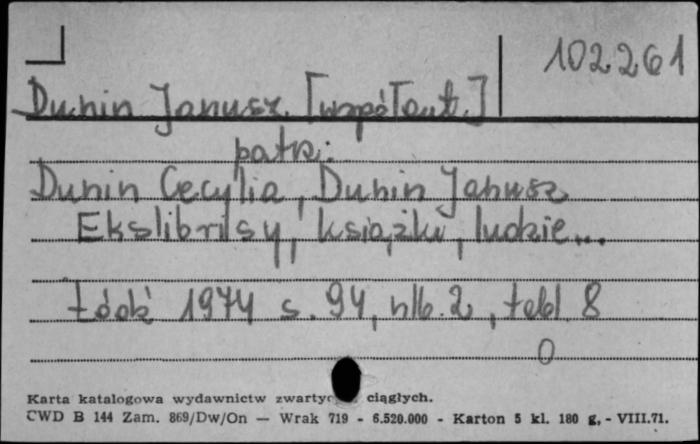 102261
Dunin Janusz. [współaut.]
patrz:
Dunin Cecylia, Dunin Janusz
Ekslibrisy, książki, ludzie...
Łódź 1974 s. 94, nlb. 2, tabl. 8
0
Karta katalogowa wydawnictw zwartyc ciągłych.
CWD B 144 Zam. 869/Dw/On — Wrak 719 - 6.520.000 - Karton 5 kl. 180 g. - VIII.71.